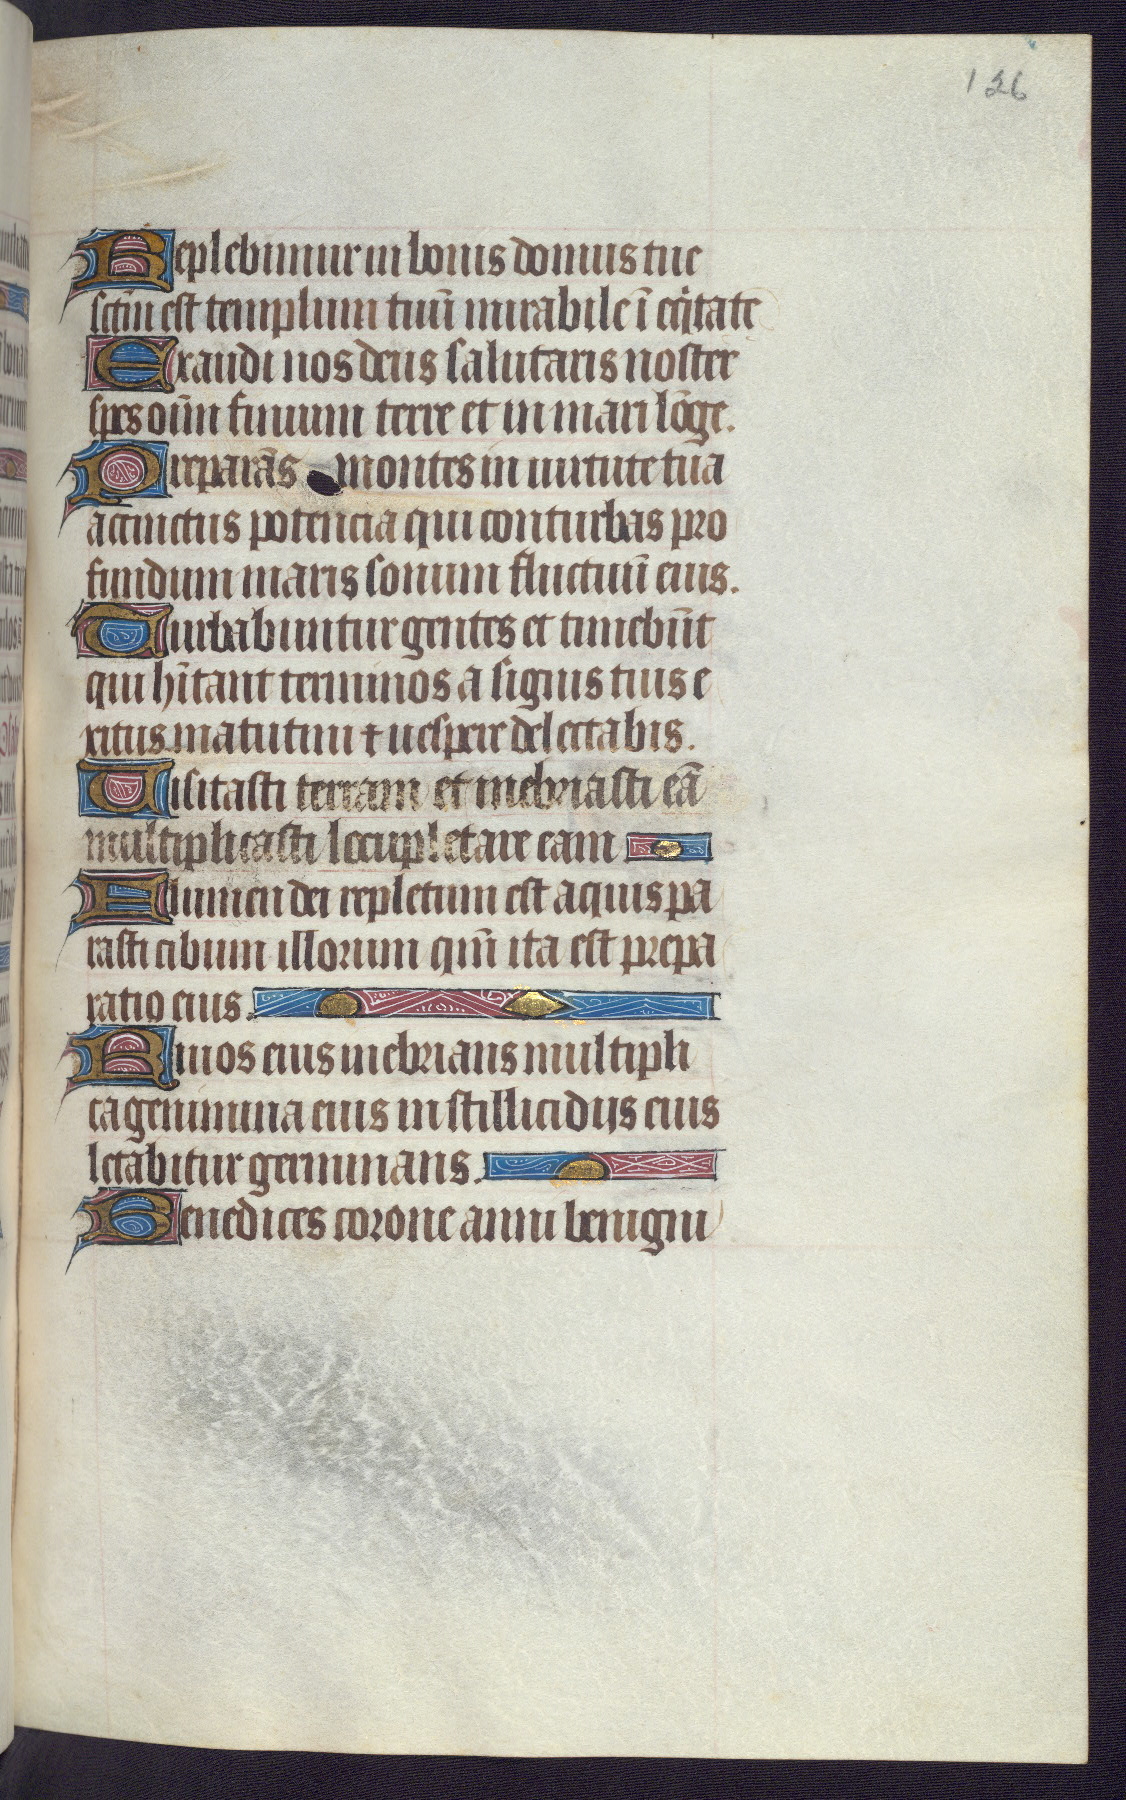 126
Replebimur in bonis domus tue
sctm̄ est templum tuū mirabile ī eq̇tate
Exaudi nos deus salutaris noster
spes oīm finium terre et in mari lōge.
Preparās montes in uirtute tua
accinctus potencia qui conturbas pro
fundum maris sonum fluctuū eius.
Turbabuntur gentes et timebūt
qui hītant terminos a signis tuis e
xitus matutini ⁊ uespere delectabis.
Uisitasti terram et inebriasti eā
multiplicasti locupletare eam
Flumen dei repletum est aquis pa
rasti cibum illorum qm̄ ita est prepa
ratio eius.
Riuos eius inebrians multipli
ca genimina eius in stillicidijs eius
letabitur germinans.
Benedices corone anni benigni